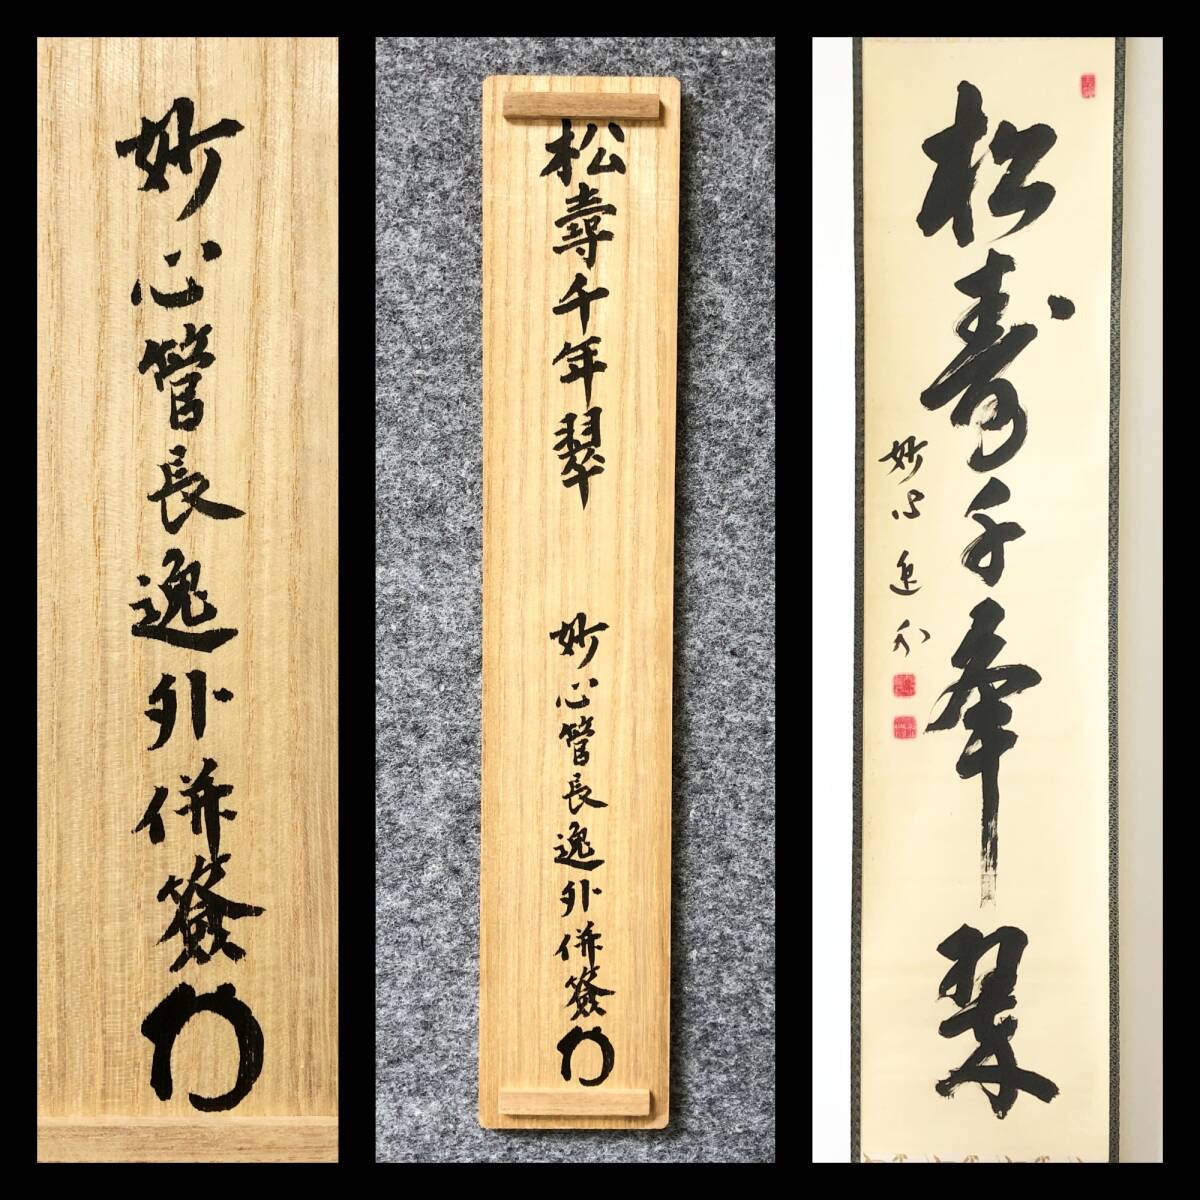 妙心管長逸外併簽
松壽千年翠
妙心管長逸外併簽
松寿千年翠
妙心逸外